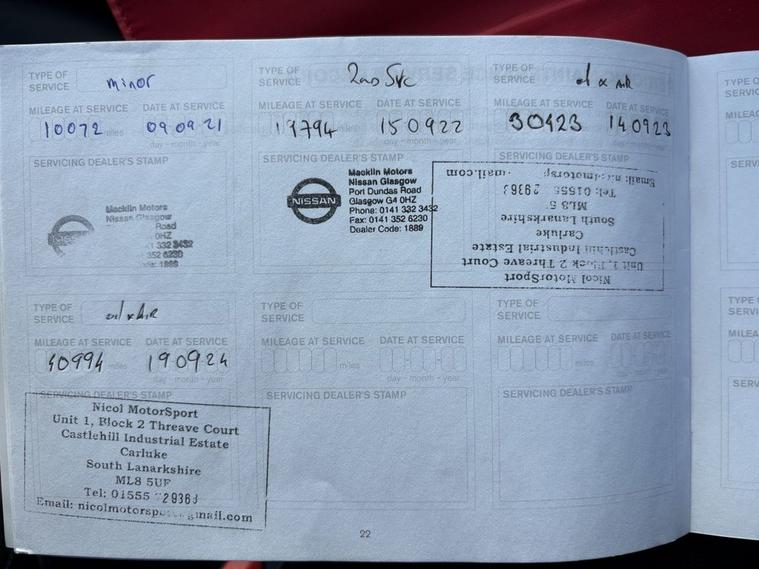 TYPE OF SERVICE minor
MILEAGE AT SERVICE DATE AT SERVICE
10072 miles 09 09 21
day - month - year
SERVICING DEALER'S STAMP
Macklin Motors
Nissan Glasgow
Road
0HZ
332 3432
352 6230
1889
TYPE OF SERVICE 2nd Svc
MILEAGE AT SERVICE DATE AT SERVICE
19794 miles 15 09 22
day - month - year
SERVICING DEALER'S STAMP
NISSAN
Macklin Motors
Nissan Glasgow
Port Dundas Road
Glasgow G4 0HZ
Phone: 0141 332 3432
Fax: 0141 352 6230
Dealer Code: 1889
TYPE OF SERVICE
MILEAGE AT SERVICE DATE AT SERVICE
30423 14 09 23
SERVICING DEALER'S STAMP
Nicol MotorSport
Unit 1, Block 2 Threave Court
Castlehill Industrial Estate
Carluke
South Lanarkshire
ML8
Tel: 01555
Email:
TYPE OF SERVICE
MILEAGE AT SERVICE DATE AT SERVICE
40994 miles 19 09 24
day - month - year
SERVICING DEALER'S STAMP
Nicol MotorSport
Unit 1, Block 2 Threave Court
Castlehill Industrial Estate
Carluke
South Lanarkshire
ML8 5UF
Tel: 01555
Email:
TYPE OF SERVICE
MILEAGE AT SERVICE DATE AT SERVICE
miles
day - month - year
SERVICING DEALER'S STAMP
TYPE OF SERVICE
MILEAGE AT SERVICE DATE AT SERVICE
miles
day - month - year
SERVICING DEALER'S STAMP
22